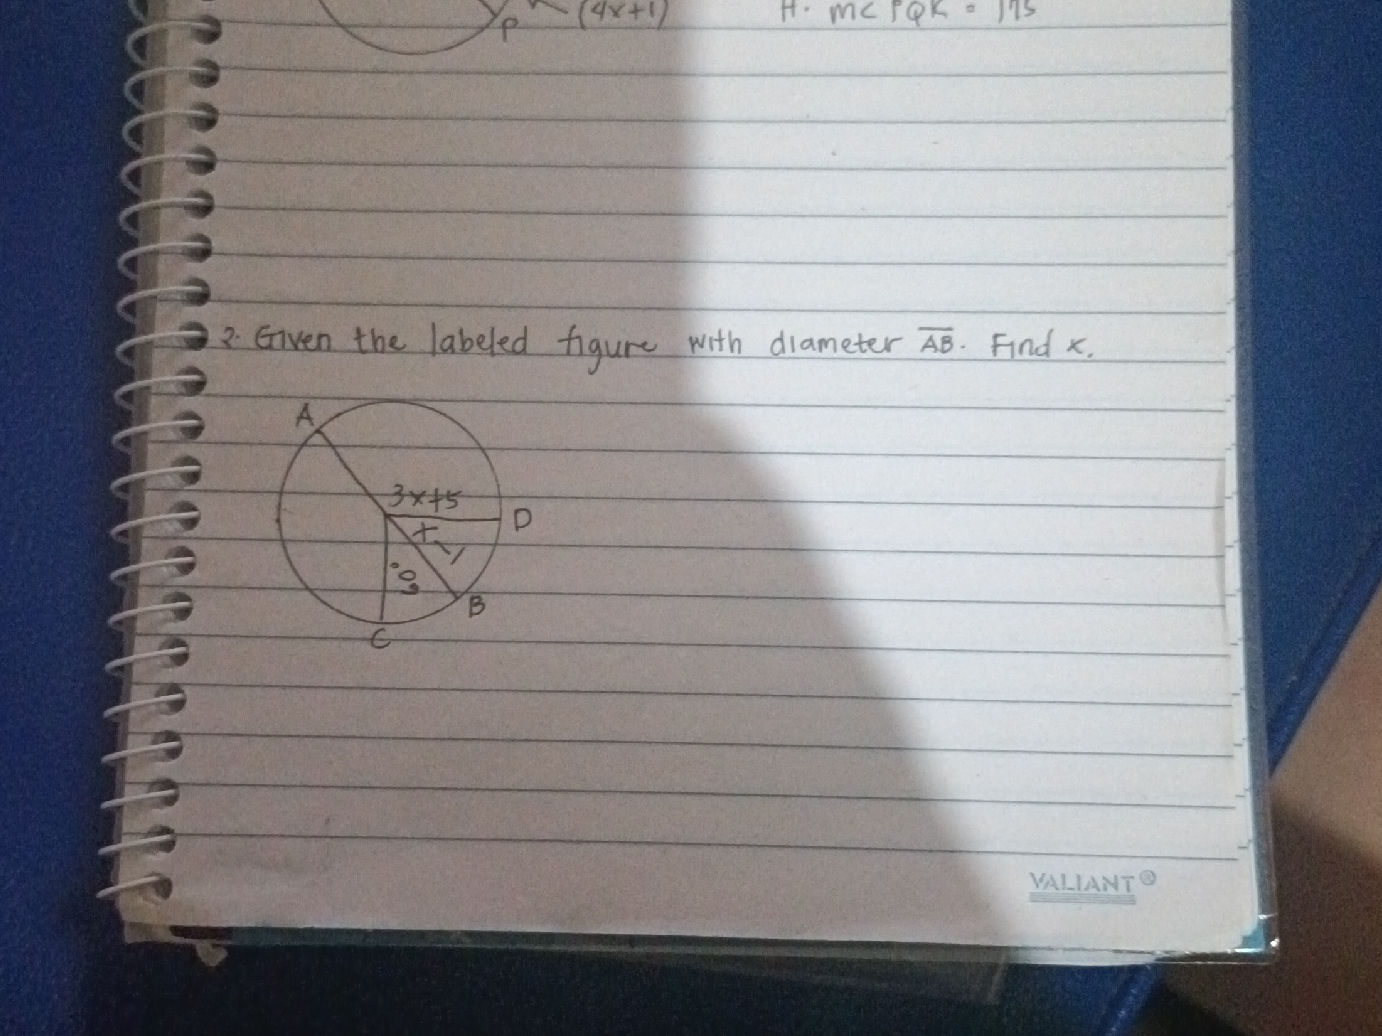 P (4x+1) H. m< PQR = 175
2. Given the labeled figure with diameter AB. Find x.
A
3x+5
D
x-1
B
C
VALIANT®